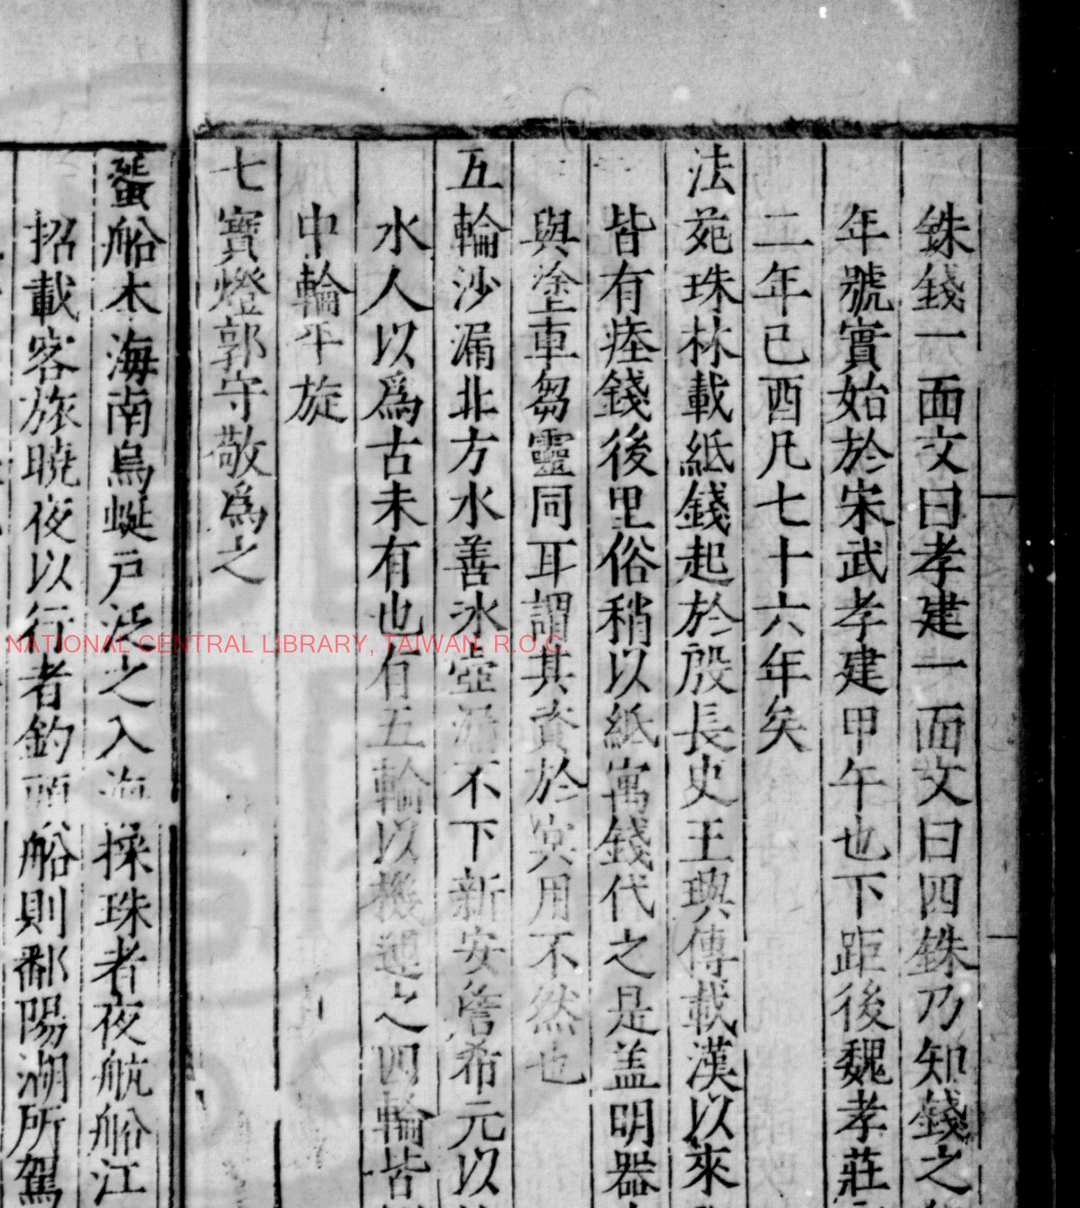 銖錢一面文曰孝建一面文曰四銖乃知錢之
年號實始於宋武孝建甲午也下距後魏孝莊
二年己酉凡七十六年矣
法苑珠林載紙錢起於殷長史王璵傳載漢以來
皆有瘞錢後里俗稍以紙寓錢代之是盖明器
與塗車芻靈同耳謂其資於㝠用不然也
五輪沙漏北方水善冰壺漏不下新安詹希元以
水人以爲古未有也有五輪以機運之四輪皆
中輪平旋
七寶燈郭守敬爲之
蜑船木海南烏蜒戶之入海採珠者夜航船江
招載客旅曉夜以行者釣頭船則鄱陽湖所駕
NATIONAL CENTRAL LIBRARY, TAIWAN, R.O.C.